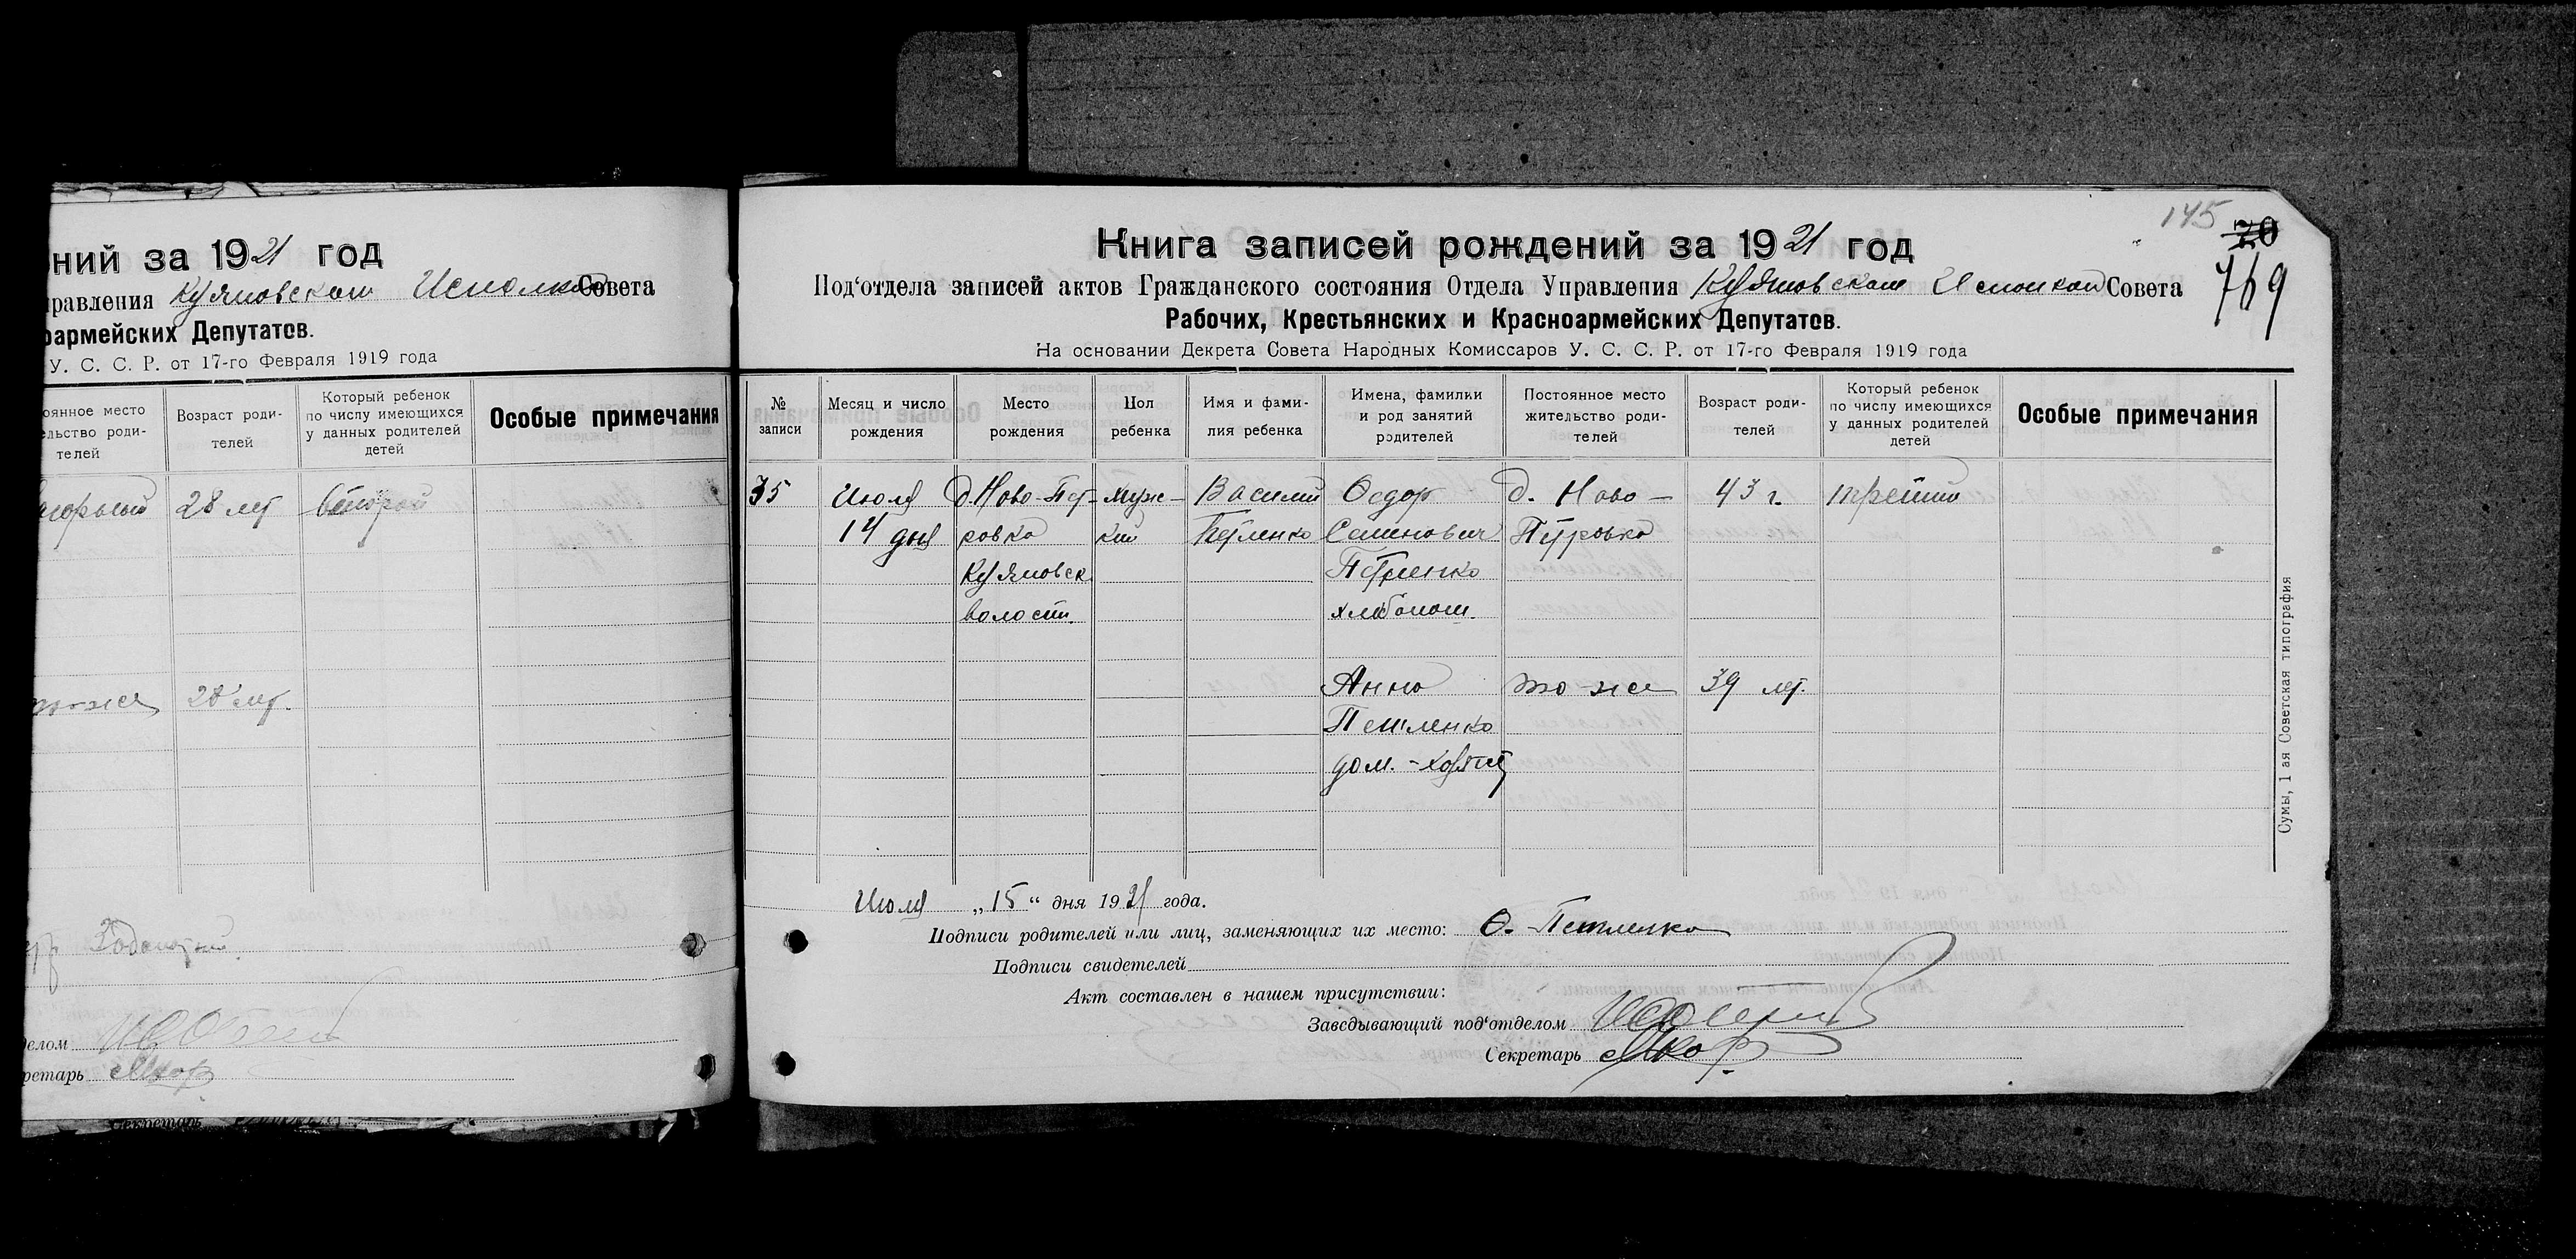 ний за 1921 год
правления Куяновском Исполком Совета
оармейских Депутатов.
У. С. С. Р. от 17-го Февраля 1919 года
оянное место
ельство роди-
телей
Возраст роди-
телей
Который ребенок
по числу имеющихся
у данных родителей
детей
Особые примечания
28 лет
второй
то-же
28 лет.
делом
ретарь
Секретарь
145
20
769
Книга записей рождений за 1921 год
Под'отдела записей актов Гражданского состояния Отдела Управления Куяновском Исполком Совета
Рабочих, Крестьянских и Красноармейских Депутатов.
На основании Декрета Совета Народных Комиссаров У. С. С. Р. от 17-го Февраля 1919 года
№
записи
Месяц и число
рождения
Место
рождения
Пол
ребенка
Имя и фами-
лия ребенка
Имена, фамилки
и род занятий
родителей
Постоянное место
жительство роди-
телей
Возраст роди-
телей
Который ребенок
по числу имеющихся
у данных родителей
детей
Особые примечания
35
Июля
14 дня
д. Ново-Пет-
ровка
Куяновск.
волости.
муж-
кий
Василий
Петленко
Федор
Семенович
Петленко
хлебопаш.
д. Ново-
Петровка
43 г.
третий
Анна
Петленко
дом.-хозяй
то-же
39 лет.
Июля „15“ дня 1921 года.
Подписи родителей или лиц, заменяющих их место: Ф. Петленко
Подписи свидетелей
Акт составлен в нашем присутствии:
Заведывающий под'отделом
Секретарь
Сумы, 1 ая Советская типография